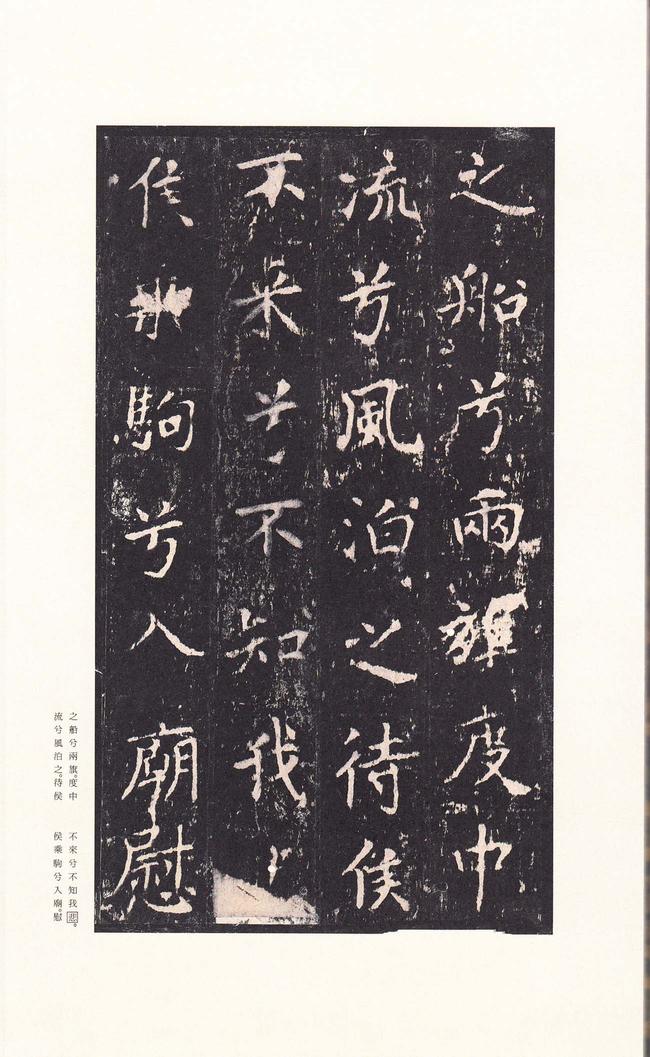 之船兮兩度中
流兮風泊之待侯
不来兮不知我
侯乘駒兮入廟慰
之船兮兩旗。度中
流兮風泊之。待侯
不來兮不知我悲。
侯乘駒兮入廟。慰